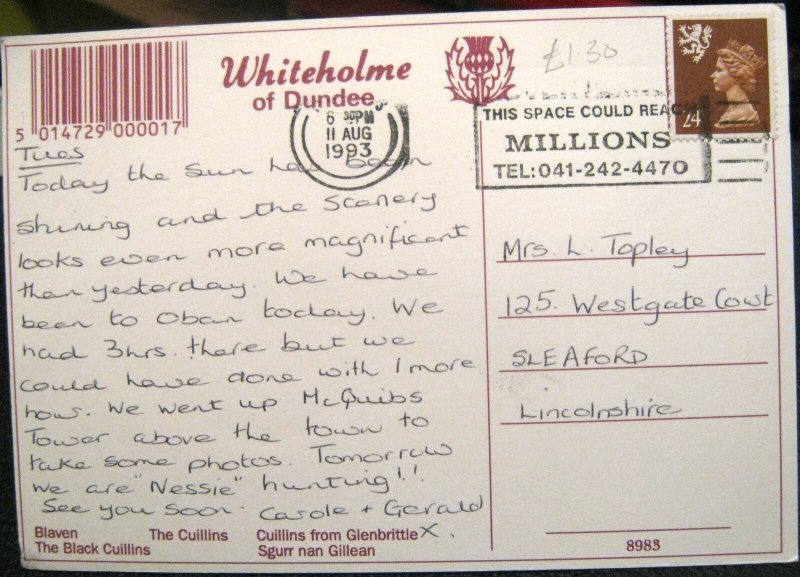 Whiteholme
of Dundee
5 014729 000017
£1.30
24
6 30PM
11 AUG
1993
THIS SPACE COULD REACH
MILLIONS
TEL:041-242-4470
Tues
Today the sun has been
shining and the scenery
looks even more magnificent
than yesterday. We have
been to Oban today. We
had 3hrs. there but we
could have done with 1 more
hour. We went up McQuibs
Tower above the town to
take some photos. Tomorrow
we are "Nessie" hunting!!
See you soon. Carole + Gerald
X.
Mrs. L. Topley
125. Westgate Court
SLEAFORD
Lincolnshire
Blaven The Cuillins Cuillins from Glenbrittle
The Black Cuillins Sgurr nan Gillean
8983